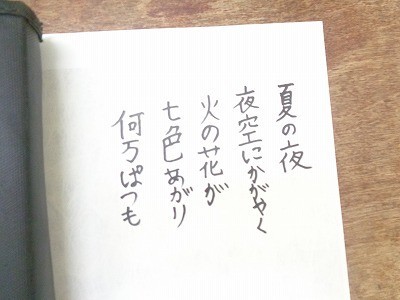 夏の夜
夜空にかがやく
火の花が
七色あがり
何万ぱつも